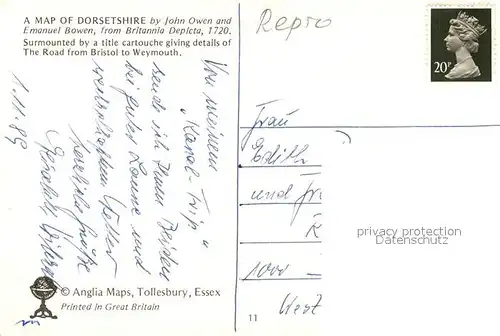 A MAP OF DORSETSHIRE by John Owen and
Emanuel Bowen, from Britannia Depicta, 1720.
Surmounted by a title cartouche giving details of
The Road from Bristol to Weymouth.
Repro
20P
1.11.89
Von meinem
"Kanal-Trip"
sende ich Ihnen Beiden
bei guter Laune und
wechselhaftem Wetter
herzliche Grüße
Frau
Edith
und
privacy protection
1000
West
© Anglia Maps, Tollesbury, Essex
Printed in Great Britain
11